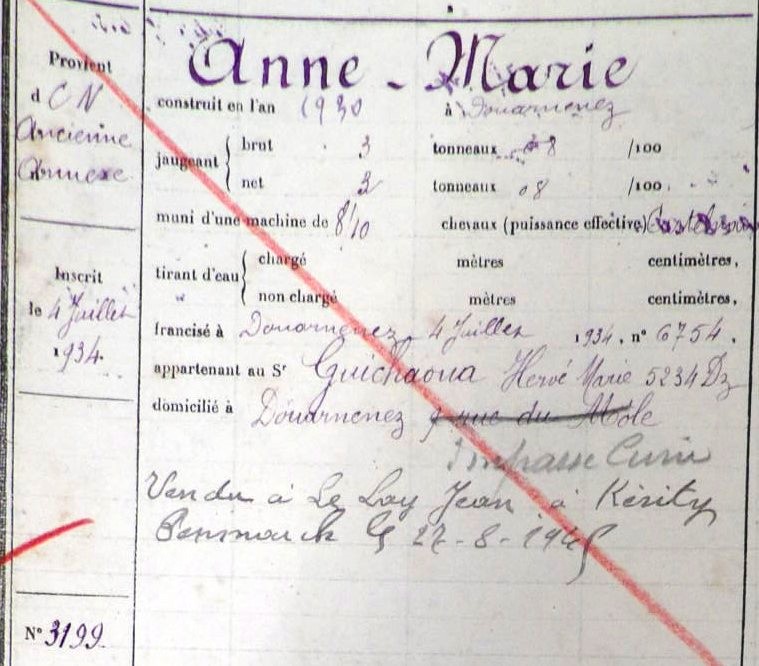 Anne - Marie
Provient
d CN
Ancienne
Annexe
construit en l'an 1930 à Douarnenez
jaugeant { brut 3 tonneaux 08 /100
net 3 tonneaux 08 /100.
muni d'une machine de 8/10 chevaux (puissance effective)
tirant d'eau { chargé mètres centimètres.
non chargé mètres centimètres.
Inscrit
le 4 Juillet
1934.
francisé à Douarnenez 4 Juillet 1934. n° 6754.
appartenant au Sr Guichaoua Hervé Marie 5234 Dz
domicilié à Douarnenez 9 rue du Môle
Impasse Curie
Vendu à Le Lay Jean à Kérity
Penmarch le 27-8-1945
N° 3199